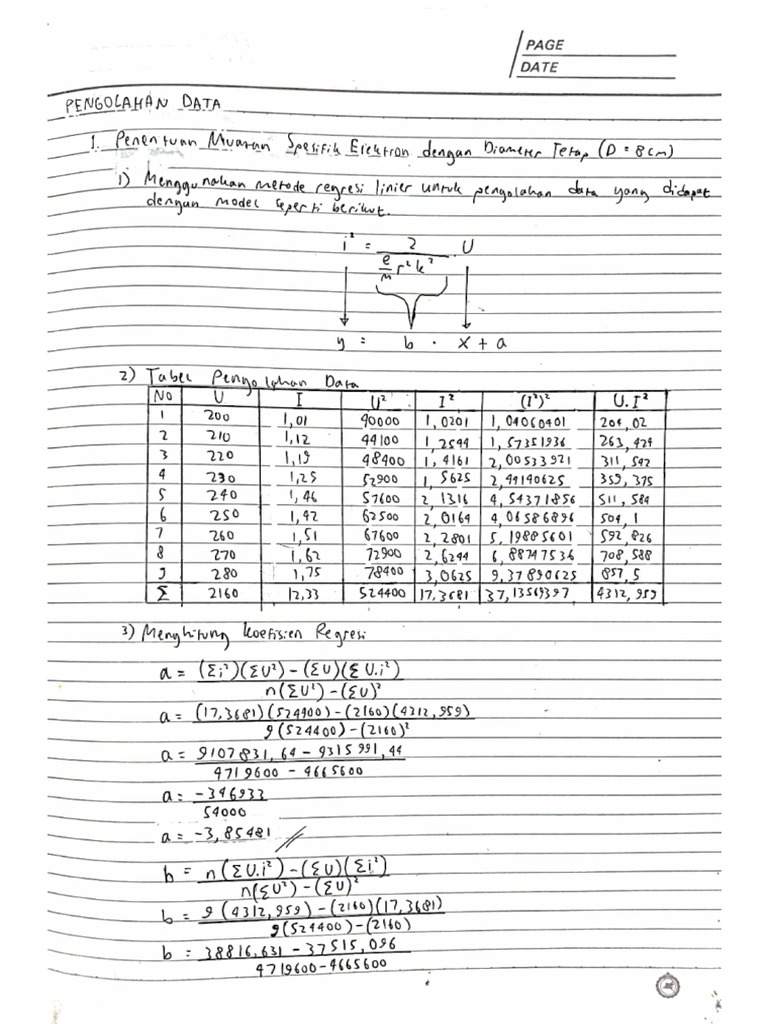 PAGE
DATE
PENGOLAHAN DATA
1. Penentuan Muatan Spesifik Elektron dengan Diameter Tetap (D = 8 cm)
1) Menggunakan metode regresi linier untuk pengolahan data yang didapat
dengan model seperti berikut.
i² = 2 / (e/m r²k²) U
y = b . x + a
2) Tabel Pengolahan Data
No U I U² I² (I²)² U.I²
1 200 1,01 40000 1,0201 1,04060401 204,02
2 210 1,12 44100 1,2544 1,57351936 263,424
3 220 1,19 48400 1,4161 2,00533921 311,542
4 230 1,25 52900 1,5625 2,44140625 359,375
5 240 1,46 57600 2,1316 4,54371856 511,584
6 250 1,42 62500 2,0164 4,06586896 504,1
7 260 1,51 67600 2,2801 5,19885601 592,826
8 270 1,62 72900 2,6244 6,88747536 708,588
9 280 1,75 78400 3,0625 9,37890625 857,5
Σ 2160 12,33 524400 17,3681 37,13569397 4312,959
3) Menghitung Koefisien Regresi
a = (Σi²)(ΣU²) – (ΣU)(ΣU.i²) / n(ΣU²) – (ΣU)²
a = (17,3681)(524400) – (2160)(4312,959) / 9(524400) – (2160)²
a = 9107831,64 – 9315991,44 / 4719600 – 4665600
a = –346933 / 54000
a = –3,85481 //
b = n(ΣU.i²) – (ΣU)(Σi²) / n(ΣU²) – (ΣU)²
b = 9(4312,959) – (2160)(17,3681) / 9(524400) – (2160)
b = 38816,631 – 37515,096 / 4719600 – 4665600